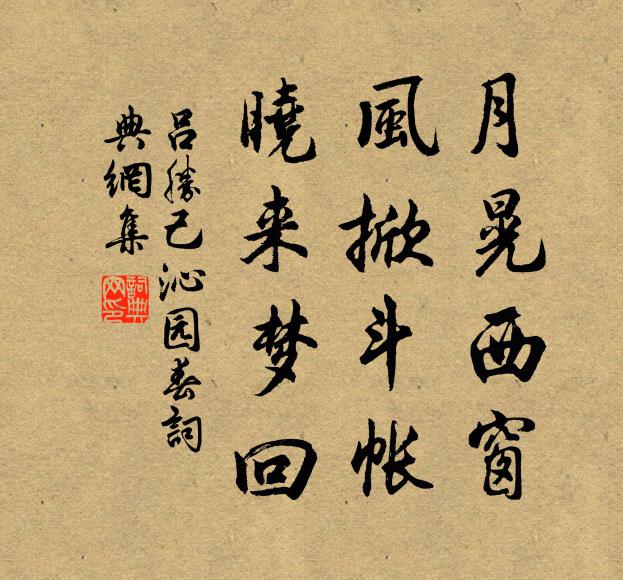 月晃西窗
風掀斗帐
曉来梦回
吕勝己沁园春詞
典網集
詞典网印